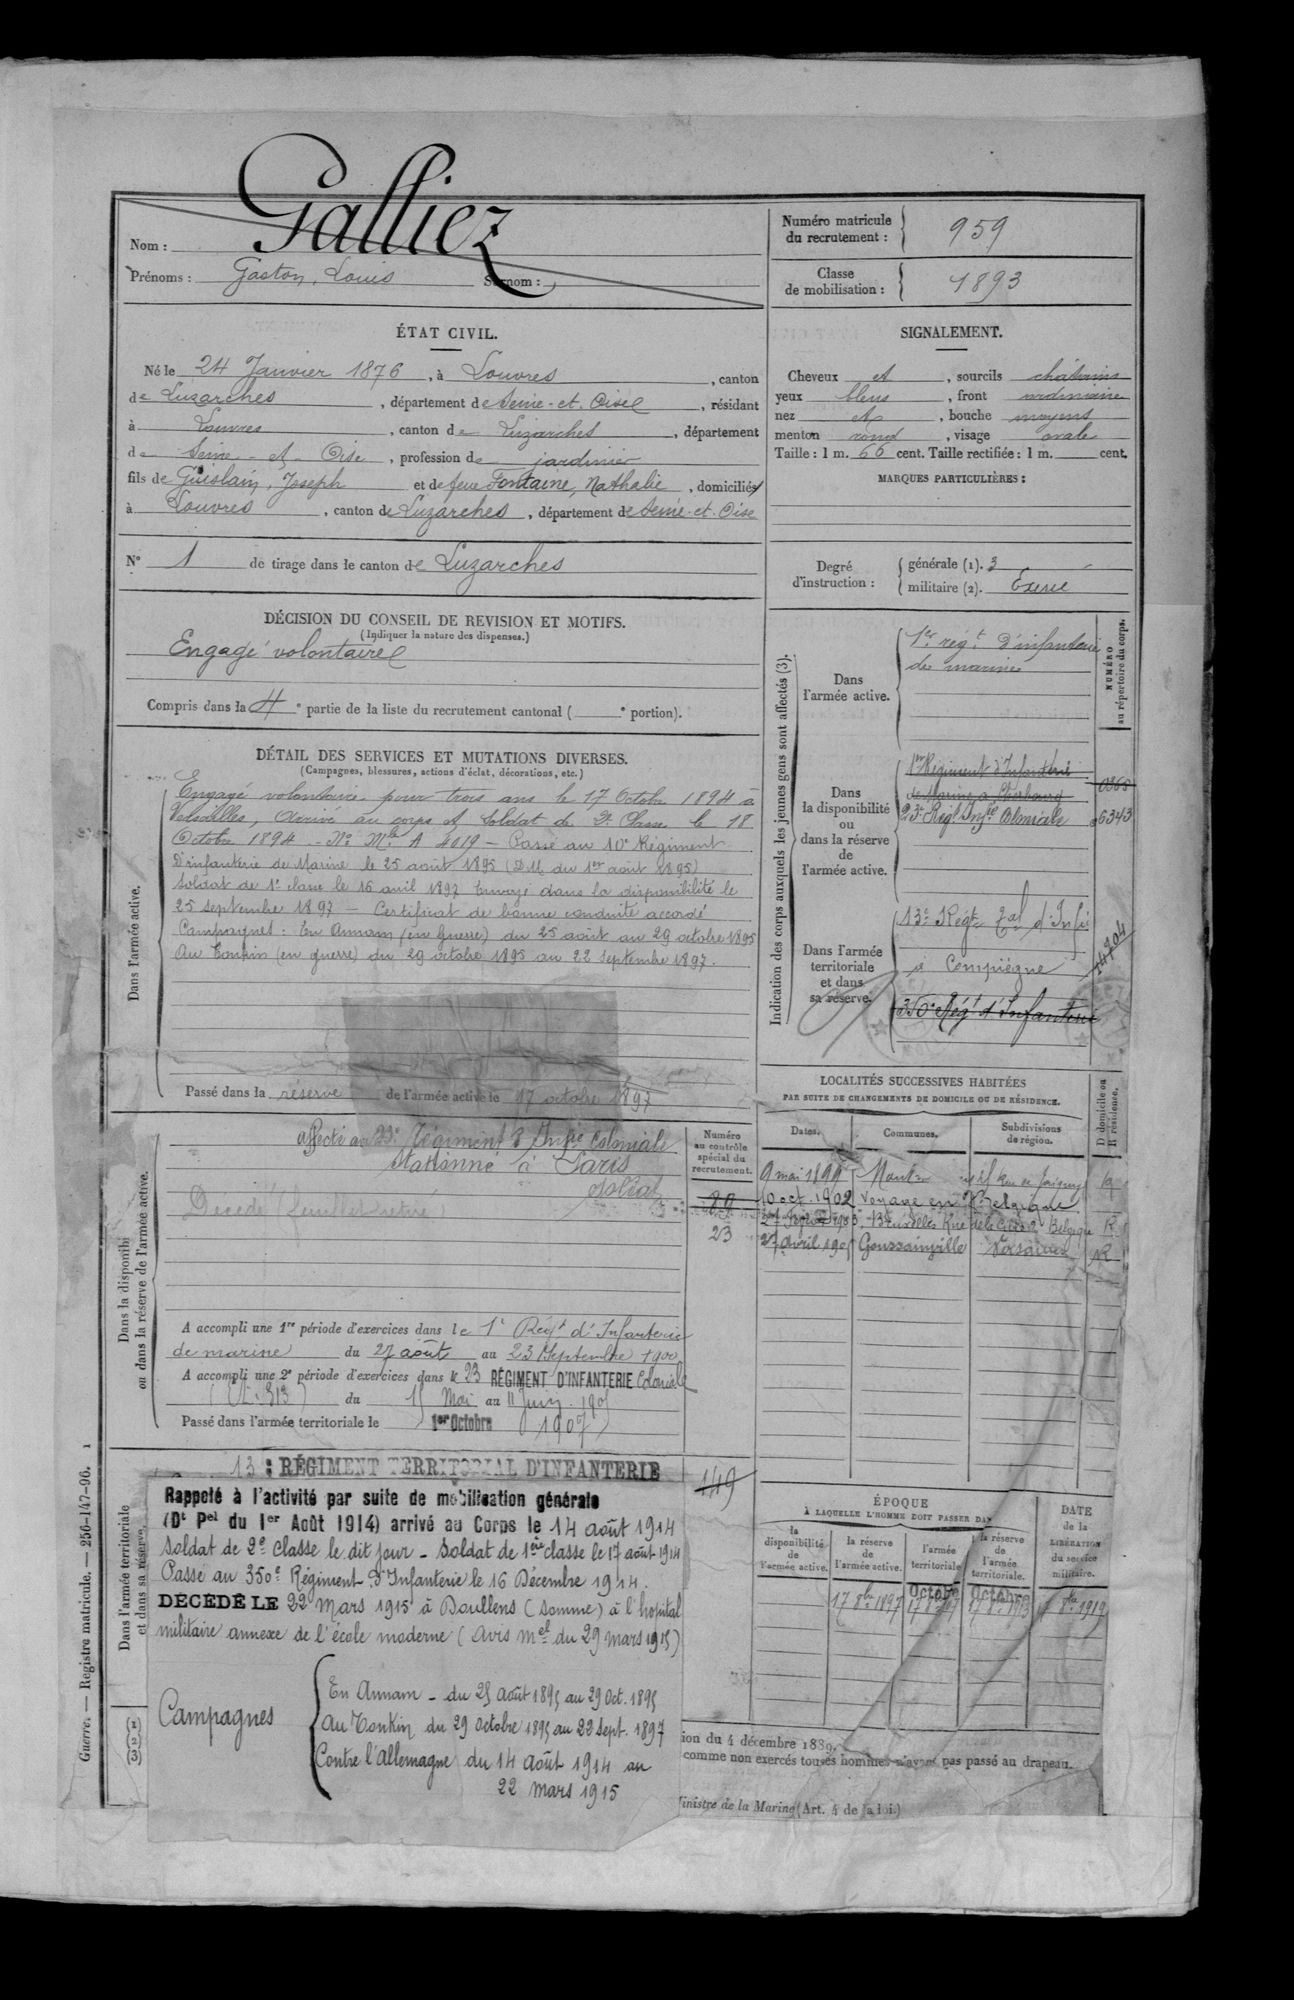 Galliez
Nom :
Prénoms : Gaston, Louis Surnom :
Numéro matricule du recrutement : 959
Classe de mobilisation : 1893
ÉTAT CIVIL.
Né le 24 Janvier 1876, à Louvres, canton
de Luzarches, département de Seine-et-Oise, résidant
à Louvres, canton de Luzarches, département
de Seine-et-Oise, profession de jardinier
fils de Guislain, Joseph et de feue Fontaine, Nathalie, domiciliés
à Louvres, canton de Luzarches, département de Seine-et-Oise
N° 1 de tirage dans le canton de Luzarches
SIGNALEMENT.
Cheveux et, sourcils châtains
yeux bleus, front ordinaire
nez et, bouche moyens
menton rond, visage ovale
Taille : 1 m. 66 cent. Taille rectifiée : 1 m. cent.
MARQUES PARTICULIÈRES :
Degré d'instruction :
générale (1). 3
militaire (2). Exercé
DÉCISION DU CONSEIL DE REVISION ET MOTIFS.
(Indiquer la nature des dispenses.)
Engagé volontaire
Compris dans la 4e partie de la liste du recrutement cantonal ( e portion).
DÉTAIL DES SERVICES ET MUTATIONS DIVERSES.
(Campagnes, blessures, actions d'éclat, décorations, etc.)
Dans l'armée active.
Engagé volontaire pour trois ans le 17 Octobre 1894 à
Versailles, Arrivé au corps et Soldat de 2e Classe le 18
Octobre 1894 - No Mle A 4019 - Passé au 10e Régiment
D'infanterie de Marine le 25 août 1895 (DM du 1er août 1895)
Soldat de 1e classe le 16 avril 1897 Envoyé dans la disponibilité le
25 septembre 1897 - Certificat de bonne conduite accordé
Campagnes : En Annam (en guerre) du 25 août au 29 octobre 1895
Au Tonkin (en guerre) du 29 octobre 1895 au 22 septembre 1897.
Passé dans la réserve de l'armée active le 17 octobre 1897
Indication des corps auxquels les jeunes gens sont affectés (3).
NUMÉRO au répertoire du corps.
Dans l'armée active.
1er régt d'infanterie
de marine
Dans la disponibilité ou dans la réserve de l'armée active.
1er Régiment d'Infanterie
de Marine à Cherbourg
23e Régt Infie Coloniale
6343
Dans l'armée territoriale et dans sa réserve.
13e Régt Tal d'Infie
à Compiègne
14204
350e Régt d'Infanterie
Dans la disponibi
ou dans la réserve de l'armée active.
affecté au 23e Régiment d'Infie Coloniale
stationné à Paris
Décédé (feuillet retiré)
Numéro au contrôle spécial du recrutement.
23
A accompli une 1re période d'exercices dans le 1er Régt d'Infanterie
de marine du 27 août au 23 Septembre 1900
A accompli une 2e période d'exercices dans le 23 RÉGIMENT D'INFANTERIE Coloniale
du Mai au 11 Juin
Passé dans l'armée territoriale le 1er Octobre 1907
LOCALITÉS SUCCESSIVES HABITÉES
PAR SUITE DE CHANGEMENTS DE DOMICILE OU DE RÉSIDENCE.
Dates. Communes. Subdivisions de région. D domicile ou R résidence.
9 mai 1899
10 oct. 1902 Voyage en Belgique
Bruxelles Rue de Belgique R
27 avril Goussainville Versailles R
Dans l'armée territoriale et dans sa réserve.
13e RÉGIMENT TERRITORIAL D'INFANTERIE
149
Rappelé à l'activité par suite de mobilisation générale
(Dt Pel du 1er Août 1914) arrivé au Corps le 14 août 1914
Soldat de 2e Classe le dit jour - Soldat de 1ère classe le 17 août 1914
Passé au 350e Régiment d'Infanterie le 16 Décembre 1914.
DÉCÉDÉ LE 22 Mars 1915 à Doullens (Somme) à l'hopital
militaire annexe de l'école moderne (avis mel du 29 mars 1915)
Campagnes
En Annam - du 25 août 1895 au 29 Oct. 1895
Au Tonkin du 29 octobre 1895 au 22 Sept. 1897
Contre l'Allemagne du 14 août 1914 au
22 mars 1915
ÉPOQUE
À LAQUELLE L'HOMME DOIT PASSER DAN
la disponibilité de l'armée active.
la réserve de l'armée active.
l'armée territoriale.
la réserve de l'armée territoriale.
DATE de la LIBÉRATION du service militaire.
17 8bre 1897
Octobre Octobre
ion du 4 décembre 1889.
comme non exercés tous les hommes n'ayant pas passé au drapeau.
inistre de la Marine (Art. 4 de la loi.)
(1) (2) (3)
Guerre. — Registre matricule. — 256-147-96. 1